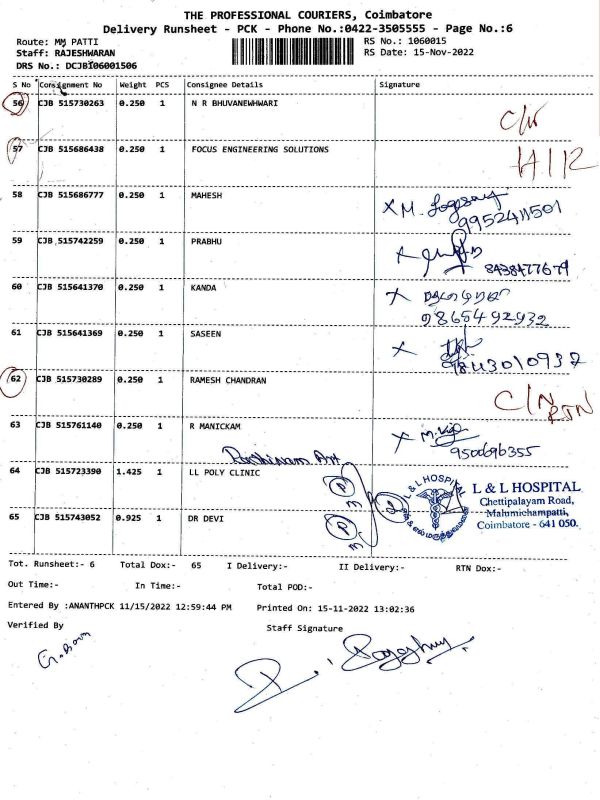 THE PROFESSIONAL COURIERS, Coimbatore
Delivery Runsheet - PCK - Phone No.:0422-3505555 - Page No.:6
Route: MM PATTI
RS No.: 1060015
Staff: RAJESHWARAN
RS Date: 15-Nov-2022
DRS No.: DCJBI06001506
S No Consignment No Weight PCS Consignee Details Signature
56 CJB 515730263 0.250 1 N R BHUVANEWHWARI
57 CJB 515686438 0.250 1 FOCUS ENGINEERING SOLUTIONS
58 CJB 515686777 0.250 1 MAHESH
9952411501
59 CJB 515742259 0.250 1 PRABHU
8438477679
60 CJB 515641370 0.250 1 KANDA
9865492932
61 CJB 515641369 0.250 1 SASEEN
9843010937
62 CJB 515730289 0.250 1 RAMESH CHANDRAN
C/N
RTN
63 CJB 515761140 0.250 1 R MANICKAM
9500696355
64 CJB 515723390 1.425 1 LL POLY CLINIC
L & L HOSPITAL
L & L HOSPITAL
Chettipalayam Road,
Malumichampatti,
Coimbatore - 641 050.
65 CJB 515743052 0.925 1 DR DEVI
Tot. Runsheet:- 6 Total Dox:- 65 I Delivery:- II Delivery:- RTN Dox:-
Out Time:- In Time:- Total POD:-
Entered By :ANANTHPCK 11/15/2022 12:59:44 PM Printed On: 15-11-2022 13:02:36
Verified By Staff Signature